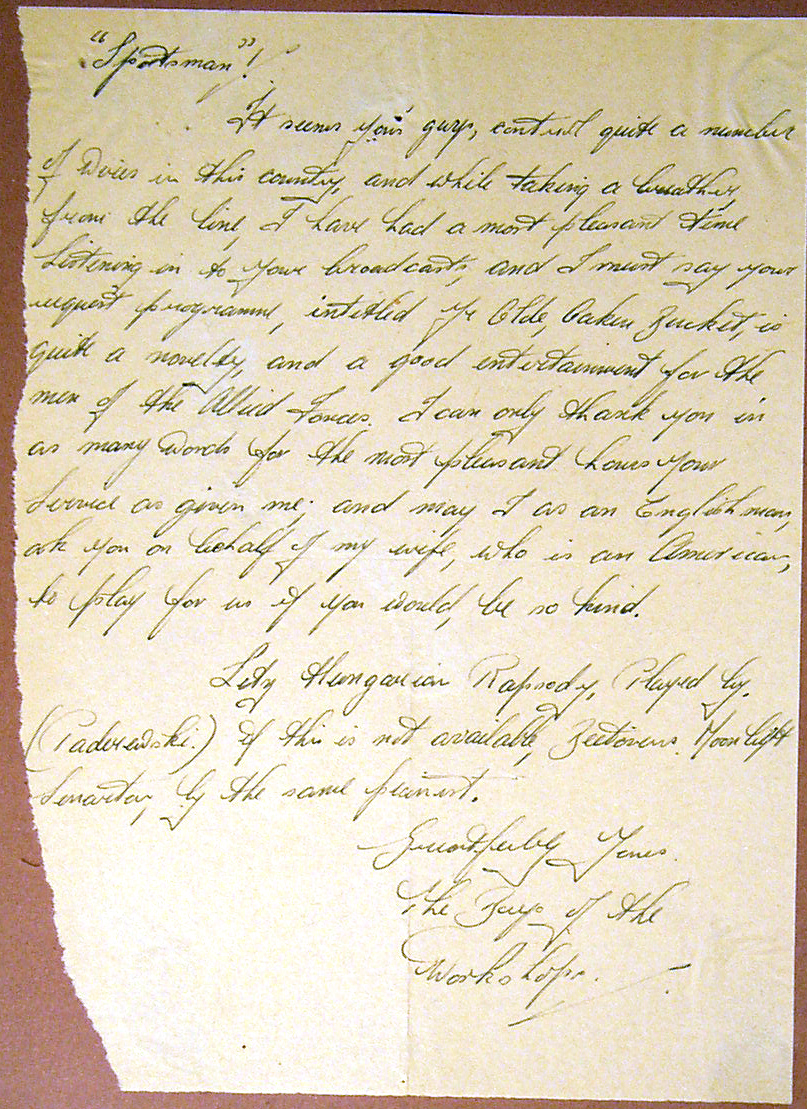 "Sportsman"!
It seems you guys, control quite a number
of Wires in this country, and while taking a breather,
from the line, I have had a most pleasant time
Listening in to your broadcasts, and I must say your
request programme, intitled Ye Olde, Oaken Bucket, is
quite a novelty, and a good entertainment for the
men of the Allied Forces. I can only thank you in
as many words for the most pleasant hours your
Service as given me; and may I as an Englishman,
ask you on behalf of my wife, who is an American,
to play for us if you would, be so kind.
Litz Hungarian Rapsody, Played by.
(Paderewski.) If this is not available, Beetovens Moonlight
Sonartor, by the same pianist.
Yours.
The Boys of the
Workshops.